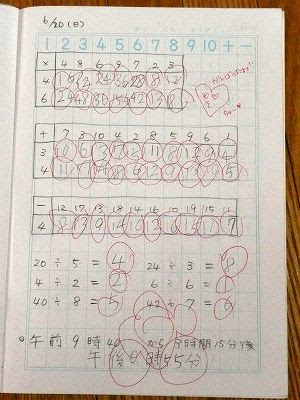 6/20(日)
1 2 3 4 5 6 7 8 9 10 + −
× 4 8 6 9 7 2 3
4
6 24 48 36 54 42 12 18
がんばったね!!
+ 7 3 10 4 2 8 5 9 6 1
3 10 6 13 7 5 11 8 12 9 4
4 11 7 14 8 6 12 9 13 10 5
− 12 17 13 18 14 16 10 19 15 11
4 8 13 9 14 10 12 6 15 11 7
20 ÷ 5 = 4 24 ÷ 3 = 8
4 ÷ 2 = 2 6 ÷ 6 = 1
40 ÷ 8 = 5 42 ÷ 7 = 6
午前9時40 から 3時間15分後
午後 時55分